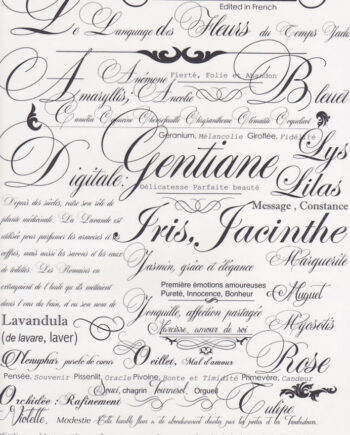 Edited in French
Le Language des Fleurs du Temps Jadis
Anemone Fierté, Folie et Abandon
Amaryllis, Ancolie Bleuet
Camélia Capucine Chèvrefeuille Chrysanthème Clématite Coquelicot
Géranium, Mélancolie Giroflée, Fidélité
Lys
Digitale: Gentiane
Délicatesse Parfaite beauté
Lilas
Depuis des siècles, entre son rôle de
Message, Constance
plante médicinale. La Lavande est
Iris, Jacinthe
utilisée pour parfumer les armoires et
coffres, mais aussi les savons et les eaux
Marguerite
de toilettes. Les Romains en
Jasmin, grâce et élégance
extrayaient de l'huile qu'ils mettaient
Première émotions amoureuses
Pureté, Innocence, Bonheur
Muguet
dans l'eau du bain, d'où son nom de
Jonquille, affection partagée
Lavandula
Myosotis
(de lavare, laver)
Narcisse, amour de soi
Nenuphar pureté de coeur
Oeillet, Mal d'amour
Rose
Pensée, Souvenir Pissenlit, Oracle Pivoine, Honte et Timidité Primevère, Candeur
Souci, chagrin Tournesol Orgueil
Orchidée: Rafinement
Tulipe
Violette, Modestie